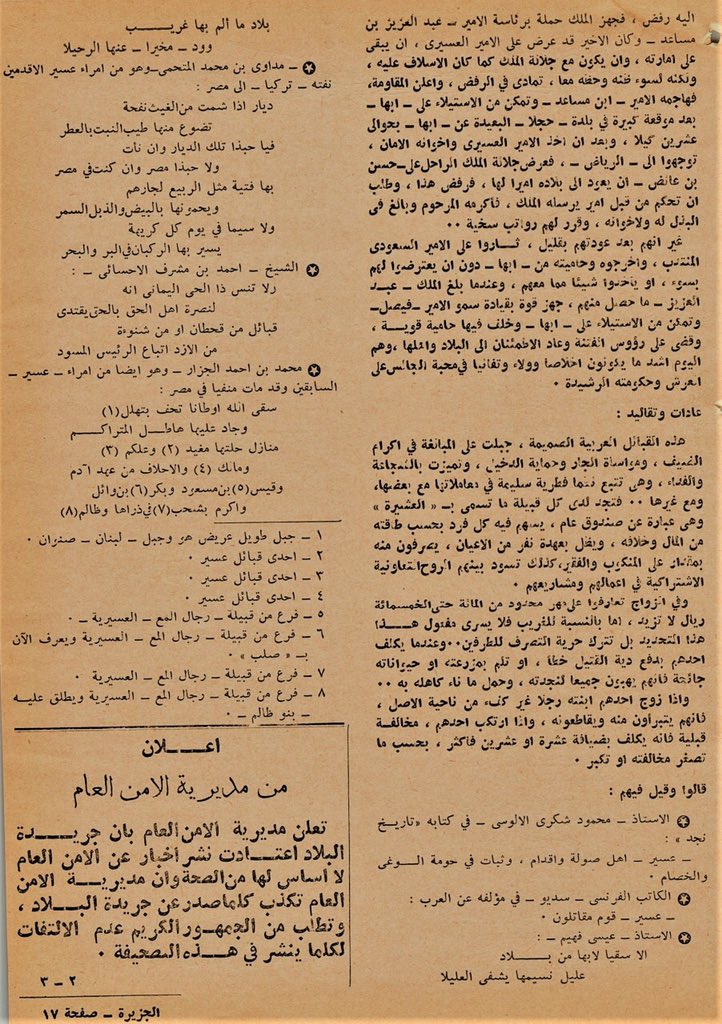 اليه رفض ، فجهز الملك حملة برئاسة الامير ــ عبد العزيز بن
مساعد ــ وكان الاخير قد عرض على الامير العسيرى ، ان يبقى
على امارته ، وان يكون مع جلالة الملك كما كان الاسلاف عليه ،
ولكنه لسوء ظنه وحقه معا ، تمادى في الرفض ، واعلن المقاومة،
فهاجمه الامير ــ ابن مساعد ــ وتمكن من الاستيلاء على ــ ابها ــ
بعد موقعة كبيرة في بلدة ــ حجلا ــ البعيدة عن ــ ابها ــ بحوالى
عشرين كيلا ، وبعد ان اخذ الامير العسيرى واخوانه الامان ،
توجهوا الى ــ الرياض ــ ، فعرض جلالة الملك الراحل على ــ حسن
بن عائض ــ ان يعود الى بلاده اميرا لها ، فرفض هذا ، وطلب
ان تحكم من قبل امير يرسله الملك ، فأكرمه المرحوم وبالغ فى
البذل له ولاخوانه ، وقرر لهم رواتب سخية ٠٠
غير انهم بعد عودتهم بقليل ، ثــاروا على الامير السعودى
المنتدب ، واخرجوه وحاميته من ــ ابها ــ دون ان يعترضوا لهم
بسوء ، او يأخذوا شيئا مما معهم ، وعندما بلغ الملك ــ عبــد
العزيز ــ ما حصل منهم ، جهز قوة بقيادة سمو الامير ــ فيصل ــ
وتمكن من الاستيلاء على ــ ابها ــ وخلف فيها حامية قويــة ،
وقضى على رؤوس الفتنة وعاد الاطمئنان الى البلاد واهلها ، وهم
اليوم اشد ما يكونون اخلاصا وولاء وتفانيا في محبة الجالس على
العرش وحكومته الرشيدة ٠
عادات وتقاليد :
هذه القبائل العربية الصميمة ، جبلت على المبالغة في اكرام
الضيف ، ومواساة الجار وحماية الدخيل ، وتميزت بالشجاعة
والفداء ، وهى تتبع نظما فطرية سليمة في معاملاتها مع بعضها،
ومع غيرها ٠٠ فتجد لدى كل قبيلة ما تسمى بــ « العشيرة »
وهى عبارة عن صندوق عام ، يسهم فيه كل فرد بحسب طاقته
من المال وخلافه ، ويظل بعهدة نفر من الاعيان ، يصرفون منه
بمقدار على المنكوب والفقير، كذلك تسود بينهم الروح التعاونية
الاشتراكية في اعمالهم ومشاريعهم ٠
وفي الزواج تعارفوا على مهر محدود من المائة حتى الخمسمائة
ريال لا تزيد ، اما بالنسبة للغريب فلا يسرى مفعول هــذا
هذا التحديد بل تترك حرية التصرف للطرفين ٠٠ وعندما يكلف
احدهم بدفع دية القتيل خطأ ، او تلم بمزرعته او حيواناته
جائحة فانهم يهبون جميعا لنجدته ، وحمل ما ناء كاهله به ٠٠
واذا زوج احدهم ابنته رجلا غير كفء من ناحية الاصل ،
فانهم يتبرأون منه ويقاطعونه ، واذا ارتكب احدهم ، مخالفــة
قبلية فانه يكلف بضيافة عشرة او عشرين فأكثر ، بحسب ما
تصغر مخالفته او تكبر ٠
قالوا وقيل فيهم :
الاستاذ ــ محمود شكرى الالوسى ــ في كتابه «تاريخ
نجد » :
ــ عسير ــ اهل صولة واقدام ، وثبات في حومة الــوغى
والخصام ٠
الكاتب الفرنسى ــ سديو ــ في مؤلفه عن العرب :
ــ عسير ــ قوم مقاتلون ٠
الاستاذ ــ عيسى فهيم ــ :
الا سقيا لابها من بــــلاد
عليل نسيمها يشفى العليلا
بلاد ما ألم بها غريــــب
وود ــ مخيرا ــ عنها الرحيلا
ــ مداوى بن محمد المتحمى ــ وهو من امراء عسير الاقدمين
نفته ــ تركيا ــ الى مصر :
ديار اذا شمت من الغيث نفحة
تضوع منها طيب النبت بالعطر
فيا حبذا تلك الديار وان نأت
ولا حبذا مصر وان كنت في مصر
بها فتية مثل الربيع لجارهم
ويحمونها بالبيض والذبل السمر
ولا سيما في يوم كل كريهة
يسير بها الركبان في البر والبحر
الشيخ ــ احمد بن مشرف الاحسائى ــ :
ولا تنس ذا الحى اليمانى انه
لنصرة اهل الحق بالحق يقتدى
قبائل من قحطان او من شنوءة
من الازد اتباع الرئيس المسود
محمد بن احمد الجزار ــ وهو ايضا من امراء ــ عسير ــ
السابقين وقد مات منفيا في مصر :
سقى الله اوطانا تحف بتهلل (١)
وجاد عليها هاطــل المتراكــم
منازل حلتها مغيد (٢) وعلكم (٣)
ومالك (٤) والاحلاف من عهد ادم
وقيس (٥) بن مسعود وبكر (٦) بن وائل
واكرم بشحب (٧) في ذراها وظالم (٨)
١ ــ جبل طويل عريض هو وجبل ــ لبنان ــ صنوان ٠
٢ ــ احدى قبائل عسير ٠
٣ ــ احدى قبائل عسير ٠
٤ ــ احدى قبائل عسير ٠
٥ ــ فرع من قبيلة ــ رجال المع ــ العسيرية ــ ٠
٦ ــ فرع من قبيلة ــ رجال المع ــ العسيرية ويعرف الآن
بــ « صلب » ٠
٧ ــ فرع من قبيلة ــ رجال المع ــ العسيرية ٠
٨ ــ فرع من قبيلة ــ رجال المع ــ العسيرية ويطلق عليــه
ــ بنو ظالم ــ ٠
اعــــلان
من مديرية الامن العام
تعلن مديرية الامن العام بان جريــدة
البلاد اعتــادت نشر اخبار عن الامن العام
لا أساس لها من الصحة وان مديريــة الامن
العام تكذب كلما صدر عن جريدة البــلاد ،
وتطلب من الجمهــور الكريم عدم الالتفات
لكلما ينشر في هــذه الصحيفة ٠
٢ ــ ٣
الجزيرة ــ صفحة ١٧